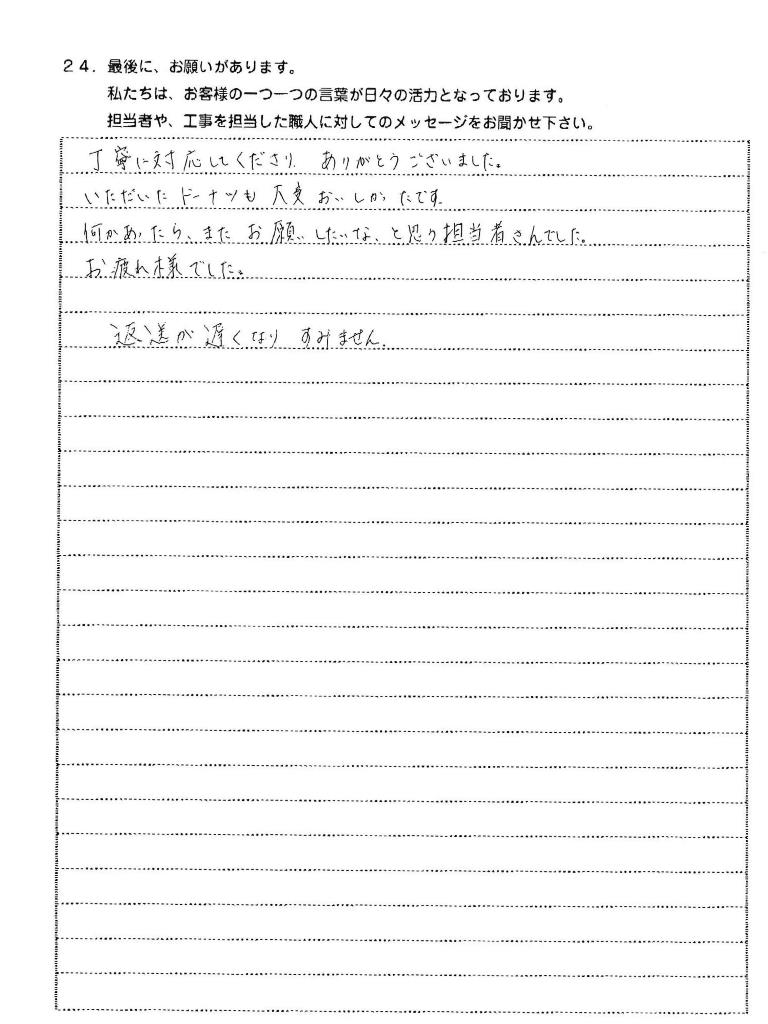 24．最後に、お願いがあります。
私たちは、お客様の一つ一つの言葉が日々の活力となっております。
担当者や、工事を担当した職人に対してのメッセージをお聞かせ下さい。
丁寧に対応してくださり ありがとうございました。
いただいたドーナツも 大変 おいしかったです。
何かあったら、また お願いしたいな、と思う担当者さんでした。
お疲れ様でした。
返送が遅くなり すみません。